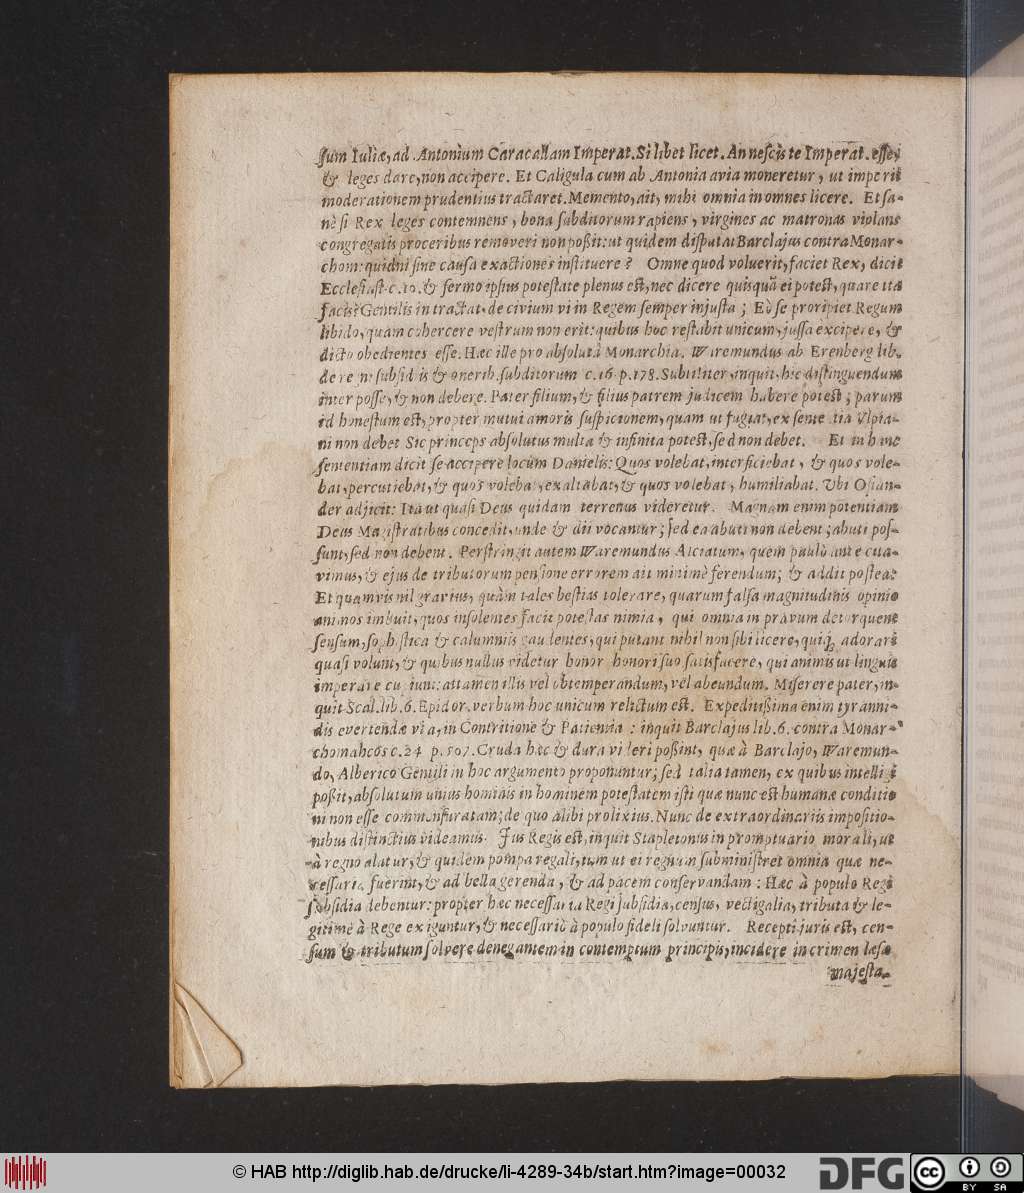 sum Iuliæ, ad Antonium Caracallam Imperat. Si libet licet. An nescis te Imperat. esse,
& leges dare, non accipere. Et Caligula cum ab Antonia avia moneretur, ut imperii
moderationem prudentius tractaret. Memento, ait, mihi omnia in omnes licere. Et sa-
nè si Rex leges contemnens, bona subditorum rapiens, virgines ac matronas violans
congregatis proceribus removeri non poßit: ut quidem disputat Barclajus contra Monar-
chom: quidni sine causa exactiones instituere? Omne quod voluerit, faciet Rex, dicit
Ecclesiast. c. 10. & sermo ipsius potestate plenus est, nec dicere quisquā ei potest, quare ita
facis? Gentilis in tractat. de civium vi in Regem semper injusta; Eò se proripiet Regum
libido, quam cohercere vestrum non erit: quibus hoc restabit unicum, jussa excipere, &
dicto obedientes esse. Hæc ille pro absolutâ Monarchia. Waremundus ab Erenberg lib.
de regni subsidiis & onerib. subditorum c. 16. p. 178. Subtiliter, inquit, hic distinguendum
inter posse, & non debere. Pater filium, & filius patrem judicem habere potest; parum
id honestum est, propter mutui amoris suspicionem, quam ut fugiat, ex sententia Ulpia-
ni non debet Sic princeps absolutus multa & infinita potest, sed non debet. Et in hanc
sententiam dicit se accipere locum Danielis: Quos volebat, interficiebat, & quos vole-
bat, percutiebat, & quos volebat, exaltabat, & quos volebat, humiliabat. Ubi Osian-
der adjicit: Ita ut quasi Deus quidam terrenus videretur. Magnam enim potentiam
Deus Magistratibus concedit, unde & dii vocantur; sed ea abuti non debent; abuti pos-
sunt, sed non debent. Perstringit autem Waremundus Alciatum, quem paulò ante cita-
vimus, & ejus de tributorum pensione errorem ait minimè ferendum; & addit postea:
Et quamvis nil gravius, quàm tales bestias tolerare, quarum falsa magnitudinis opinio
animos imbuit, quos insolentes facit potestas nimia, qui omnia in pravum detorquent
sensum, sophistica & calumniis gaudentes, qui putant nihil non sibi licere, quiq́; adorari
quasi volunt, & quibus nullus videtur honor honori suo satisfacere, qui animis ut linguis
imperare cupiunt: attamen illis vel obtemperandum, vel abeundum. Miserere pater, in-
quit Scal. lib. 6. Epidor. verbum hoc unicum relictum est. Expeditißima enim tyranni-
dis evertendæ via, in Contritione & Patientia: inquit Barclajus lib. 6. contra Monar-
chomahcos c. 24 p. 507. Cruda hæc & dura videri poßint, quæ à Barclajo, Waremun-
do, Alberico Gentili in hoc argumento proponuntur; sed talia tamen, ex quibus intelligi
poßit, absolutum unius hominis in hominem potestatem isti quæ nunc est humanæ conditio
ni non esse commensuratam; de quo alibi prolixius. Nunc de extraordinariis impositio-
nibus distinctius videamus. Jus Regis est, inquit Stapletonus in promptuario morali, ut
à regno alatur, & quidem pompa regali, tum ut ei regnum subministret omnia quæ ne-
cessaria fuerint, & ad bella gerenda, & ad pacem conservandam: Hæc à populo Regi
subsidia debentur: propter hæc necessaria Regi subsidia, census, vectigalia, tributa & le-
gitimè à Rege exiguntur, & necessariò à populo fideli solvuntur. Recepti juris est, cen-
sum & tributum solvere denegantem in contemptum principis, incidere in crimen læsæ
majesta-
© HAB http://diglib.hab.de/drucke/li-4289-34b/start.htm?image=00032
DFG
cc
BY SA